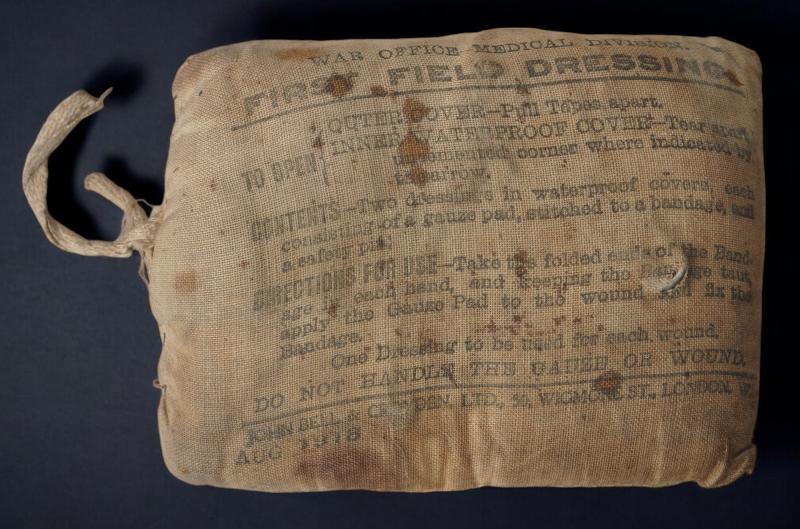 WAR OFFICE–MEDICAL DIVISION.
FIRST FIELD DRESSING.
OUTER COVER—Pull Tapes apart.
TO OPEN { INNER WATERPROOF COVER—Tear apart
uncemented corner where indicated by
arrow.
CONTENTS—Two dressings in waterproof covers, each
consisting of a gauze pad, stitched to a bandage, and
a safety pin.
DIRECTIONS FOR USE—Take the folded ends of the Band-
age in each hand, and keeping the Bandage taut,
apply the Gauze Pad to the wound and fix the
Bandage.
One Dressing to be used for each wound.
DO NOT HANDLE THE GAUZE OR WOUND.
JOHN BELL & CROYDEN, LTD., 50, WIGMORE ST., LONDON, W.
AUG 1918